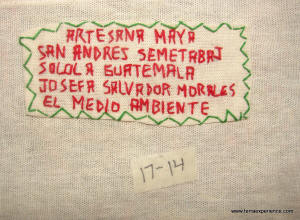 ARTESANA MAYA
SAN ANDRES SEMETABAJ
SOLOLA GUATEMALA
JOSEFA SALVADOR MORALES
EL MEDIO AMBIENTE
17-14
www.temaexperience.com